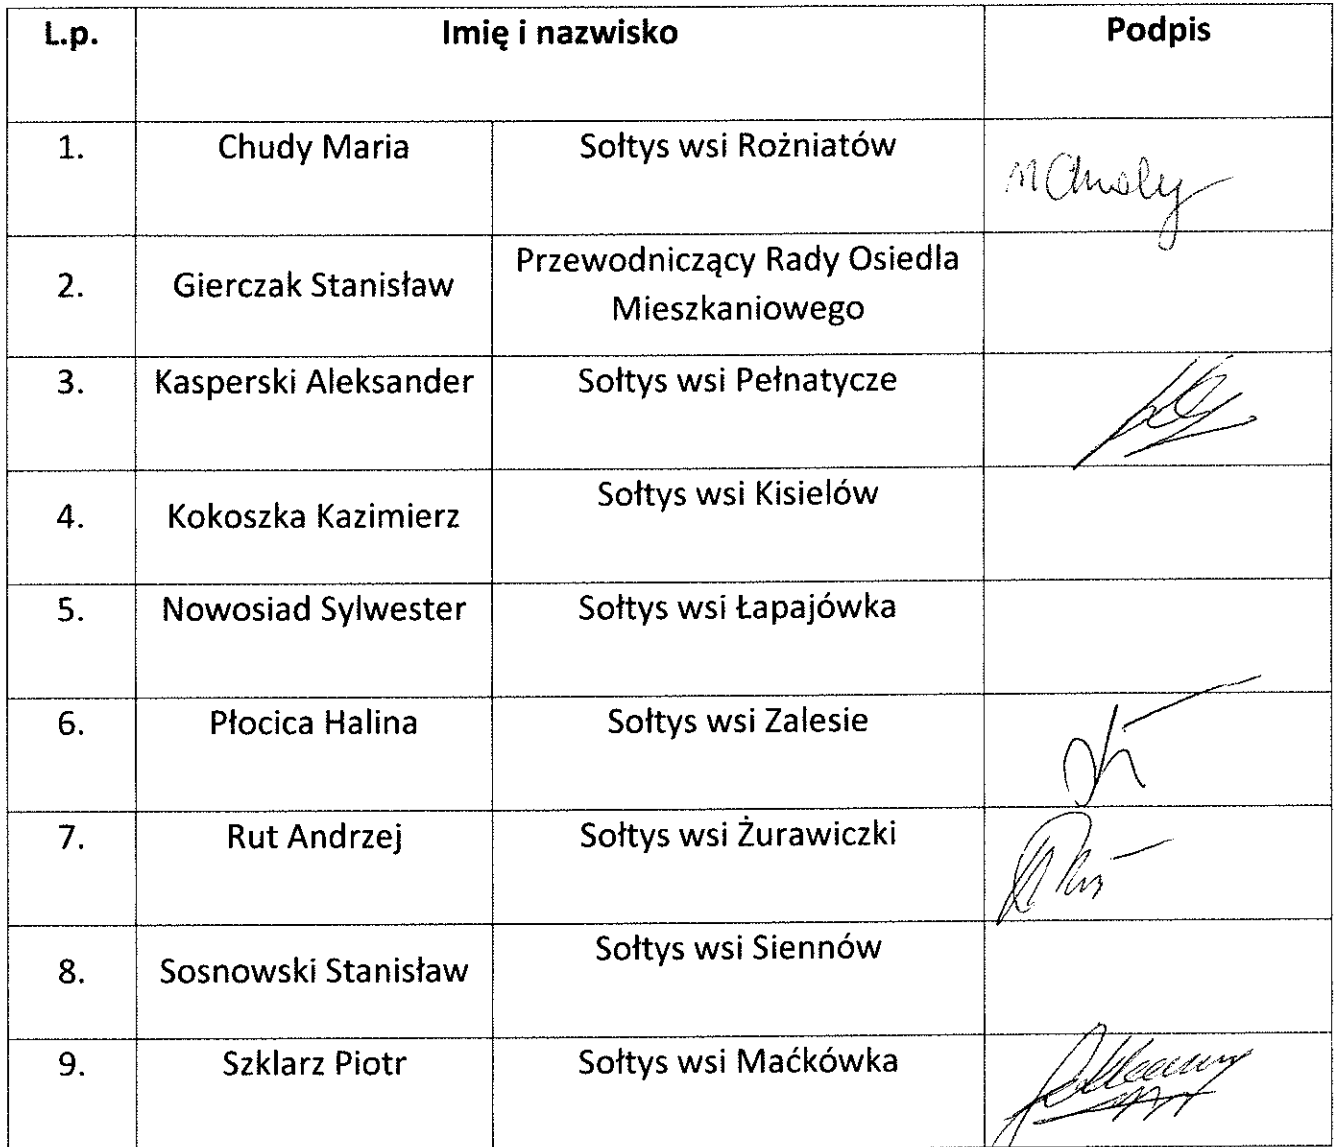 L.p. Imię i nazwisko Podpis
1. Chudy Maria Sołtys wsi Rożniatów M Chudy
2. Gierczak Stanisław Przewodniczący Rady Osiedla
Mieszkaniowego
3. Kasperski Aleksander Sołtys wsi Pełnatycze
4. Kokoszka Kazimierz Sołtys wsi Kisielów
5. Nowosiad Sylwester Sołtys wsi Łapajówka
6. Płocica Halina Sołtys wsi Zalesie
7. Rut Andrzej Sołtys wsi Żurawiczki
8. Sosnowski Stanisław Sołtys wsi Siennów
9. Szklarz Piotr Sołtys wsi Maćkówka